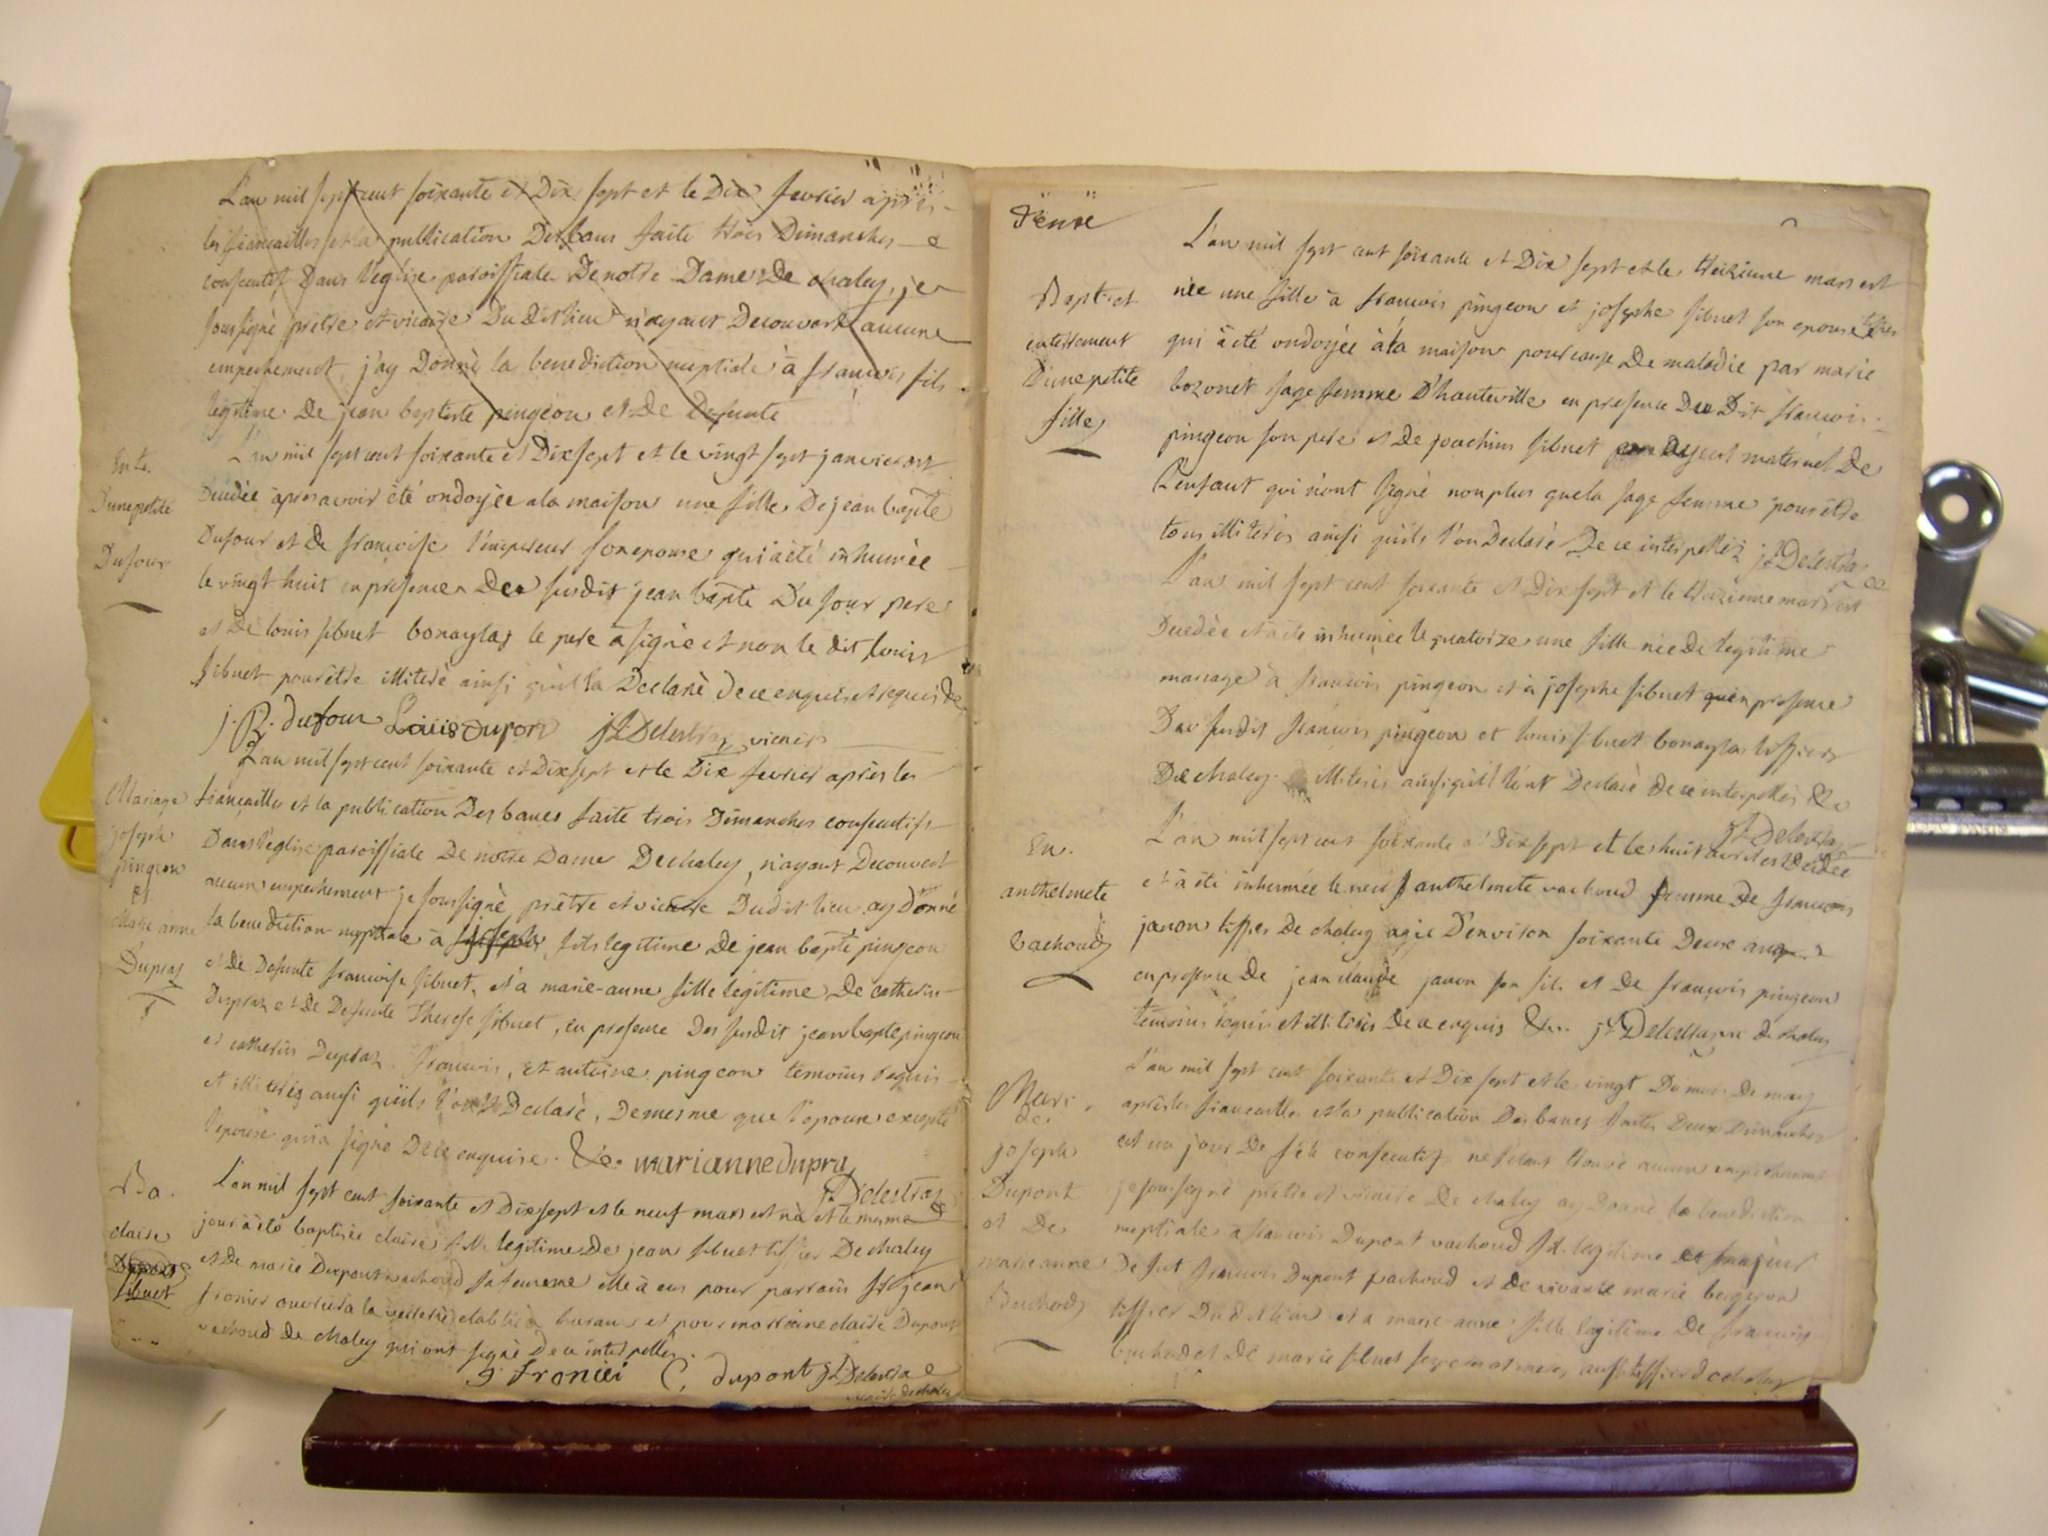 L'an mil sept cent soixante et Dix sept et le Dix fevrier après
les fiancailles et la publication Des bans faite trois Dimanches
consecutifs Dans l'eglise paroissiale De notre Dame De chaley, je
soussigné prêtre et vicaire Du dit lieu n'ayant Decouvert aucune
empechement j'ay Donnè la benediction nuptiale à francois fils
legitime De jean baptiste pingeon et De Defunte
Ente.
D'une petite
Dufour
L'an mil sept cent soixante et Dix sept et le vingt sept janvier est
Decedée après avoir été ondoyée a la maison une fille De jean bapte
Dufour et de francoise l'empereur son epouse qui a èté inhumée
le vingt huit en presence Des susdit jean bapte Dufour pere
et De louis sibuet bonaglas le pere a signè et non le dit louis
sibuet pour être illiterè ainsi qu'il la Declarè de ce enquis et requis De
j. B. dufour Louis Dupor jfDelestraz vicaire
Mariage
joseph
pingeon
et
Marie anne
Dupraz
L'an mil sept cent soixante et Dix sept et le Dix fevrier après les
fiancailles et la publication Des bancs faite trois Dimanches consecutifs
Dans l'eglise paroissiale De notre Dame De chaley, n'ayant Decouvert
aucun empechement je soussignè prêtre et vicaire Dudit lieu ay Donnè
la benediction nuptiale à joseph fils legitime De jean bapte pingeon
et De Defunte francoise sibuet, et a marie-anne fille legitime De catherin
Dupraz et De Defunte Therese sibuet, en presence Des susdit jean bapte pingeon
et catherin Dupraz. francois, et antoine pingeon temoins requis
et illiterès ainsi qu'ils l'ont Declarè, De mesme que l'epoux excepté
l'epouse qui a signe De ce enquise. &c. marianne dupra
jfDelestraz
Ba.
claire
Dupont
sibuet
L'an mil sept cent soixante et Dix sept et le neuf mars est nà et le mesme
jour à été baptisée claire fille legitime De jean sibuet tissier De chaley
et De marie Dupont vachoud sa femme elle à eus pour parrain sr jean
fronier ouvrier a la verrerie etablie a et pour marraine claire Dupont
vachoud de chaley qui ont signè De ce interpellés.
j. fronier C, dupont jfDelestraz
vicaire de chaley
Bapt. et
enterrement
D'une petite
fille
L'an mil sept cent soixante et Dix sept et le treizieme mars est
née une fille à francois pingeon et josephe sibuet son epouse
qui à èté ondoyée à la maison pour cause De maladie par marie
bozonet sage femme D'hauteville en presence Du Dit francois
pingeon son pere et De joachim sibuet ayeul maternel De
l'enfant qui n'ont signè non plus que la sage femme pour être
tous illiterès ainsi qu'ils l'on Declarè De ce interpellés jfDelestraz
L'an mil sept cent soixante et Dix sept et le treizieme mars est
Decedèe et a été inhumée le quatorze une fille née De legitime
mariage à francois pingeon et à josephe sibuet en presence
Du susdit francois pingeon et louis sibuet bonaglas tissiers
De chaley illiterés ainsi qu'il l'ont Declarè de ce interpellés &c
jfDelestraz
En.
anthelmete
Vachoud
L'an mil sept cent soixante et Dix sept et le huit avril est Decedée
et à été inhumée le neuf anthelmete vachoud femme De francois
janon tissier De chaley agée D'environ soixante Deux ans
en presence De jean claude janon son fils et De francois pingeon
temoins requis et illiterés De ce enquis &c. jfDelestraz De chaley
Mari.
de
joseph
Dupont
et De
marie anne
Bachod
L'an mil sept cent soixante et Dix sept et le vingt Du mois De may
après les fiancailles et la publication Des bancs faites Deux Dimanches
et un jour De fète consecutifs ne s'etant trouvé aucun empechement
je soussigné prêtre et vicaire De chaley ay Donnè la benediction
nuptiale a francois Dupont vachoud fils legitime et majeur
De fut francois Dupont vachoud et De vivante marie bergeron
tissier Du dit lieu et a marie-anne fille legitime De francois
bachod et De marie sibuet ses pere et mere, aussi tissier De chaley